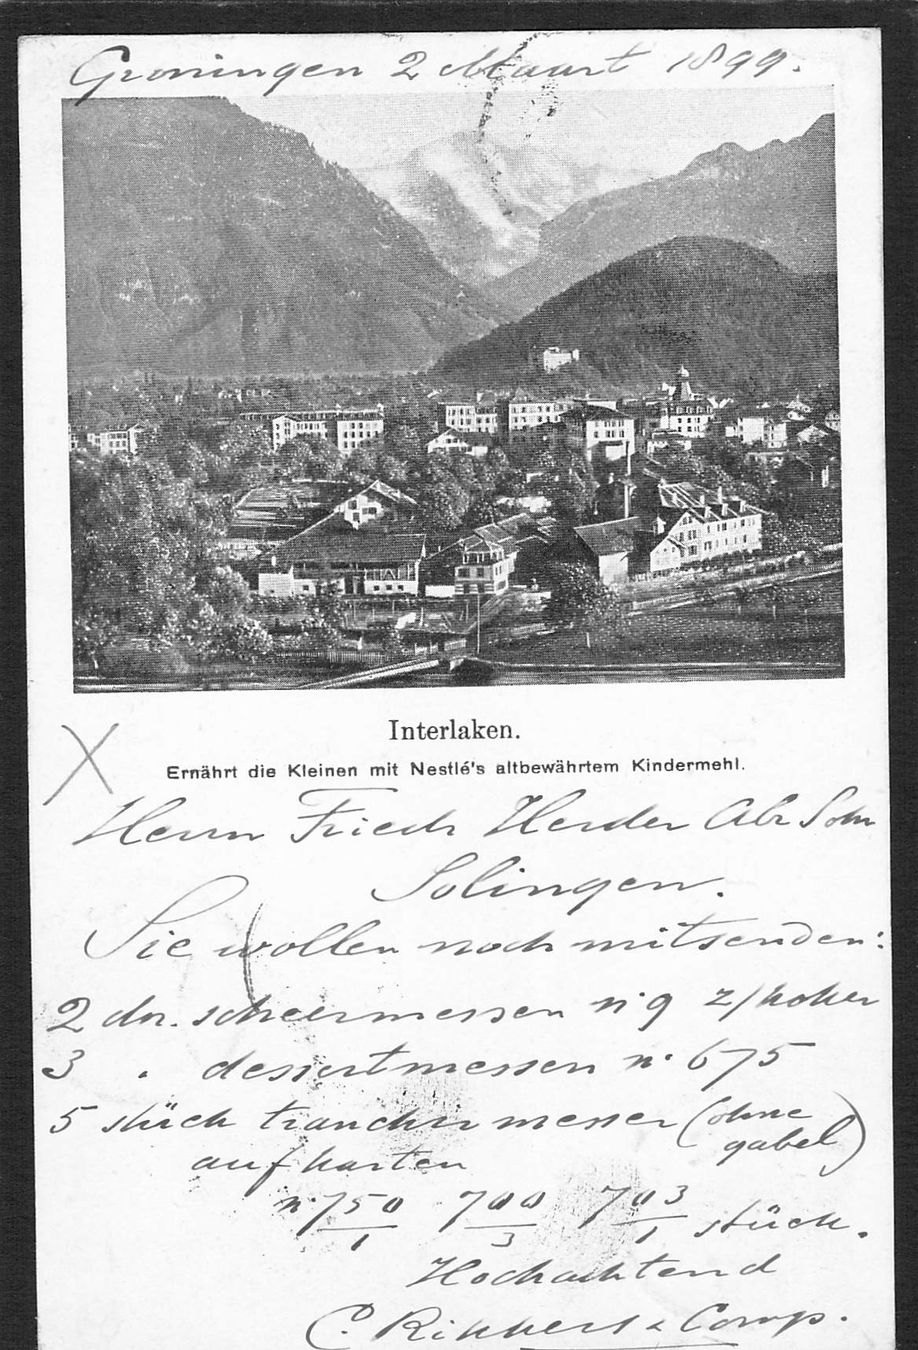 Groningen 2 Maart 1899.
Interlaken.
Ernährt die Kleinen mit Nestlé's altbewährtem Kindermehl.
Herrn Friedr Herder Abr Sohn
Solingen.
Sie wollen noch mitsenden:
2 dn. scheermessen n° 9 z/koker
3 " dessertmessen n° 675
5 stück trancher messer (ohne
gabel)
auf karten
n° 750/1 700/3 703/1 stück.
Hochachtend
C. & Comp.